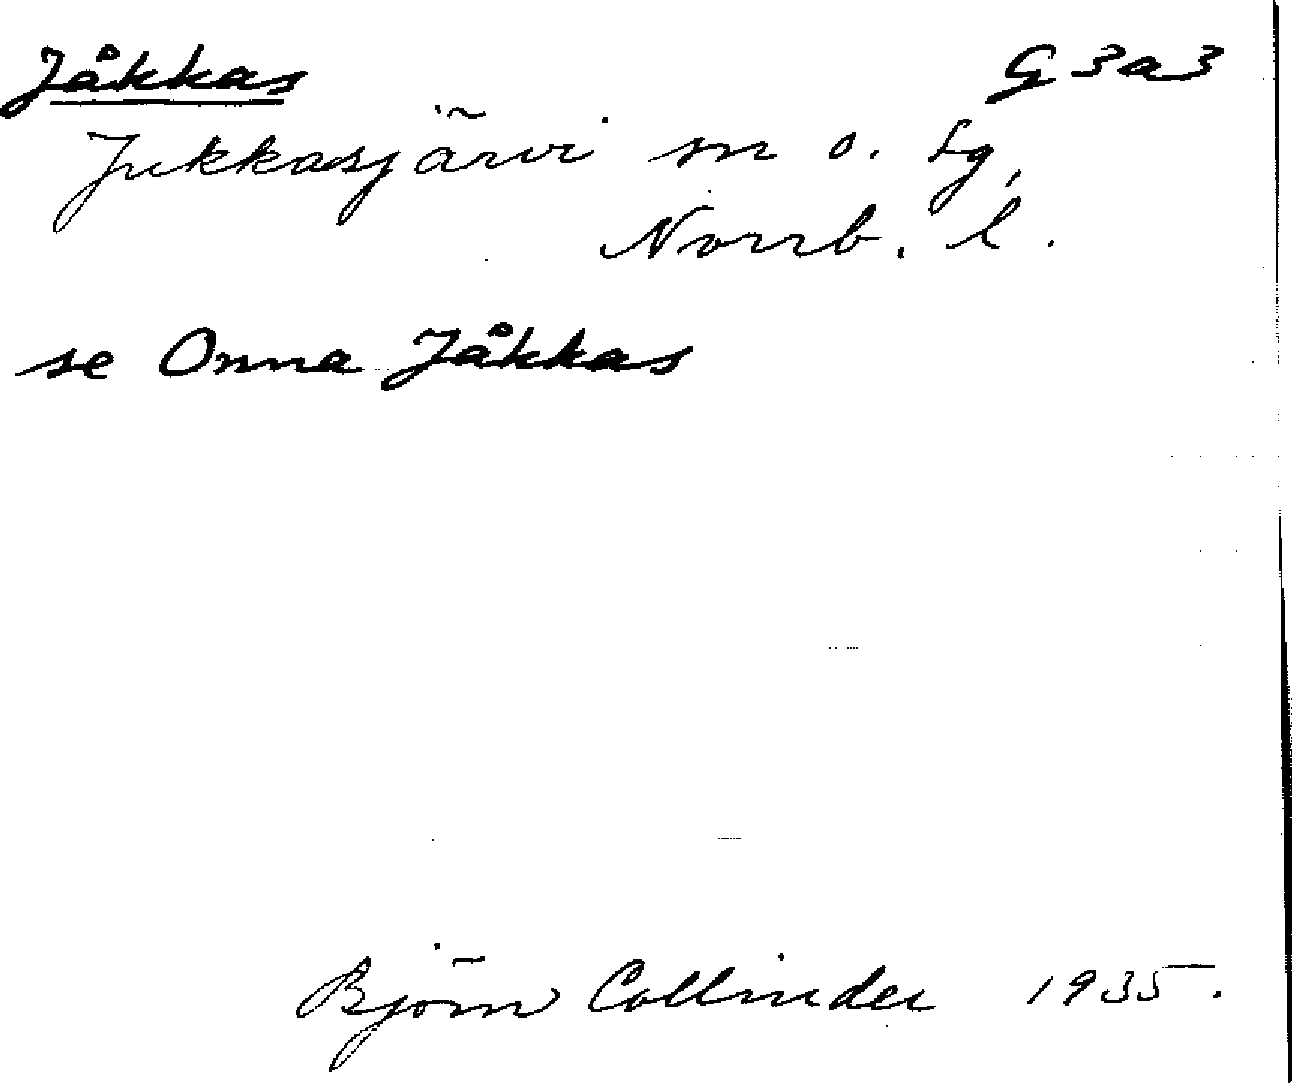 Jåkkas G 3 a 3
Jukkasjärvi sn o. tg,
Norrb. l.
se Onna Jåkkas
Björn Collinder 1935.